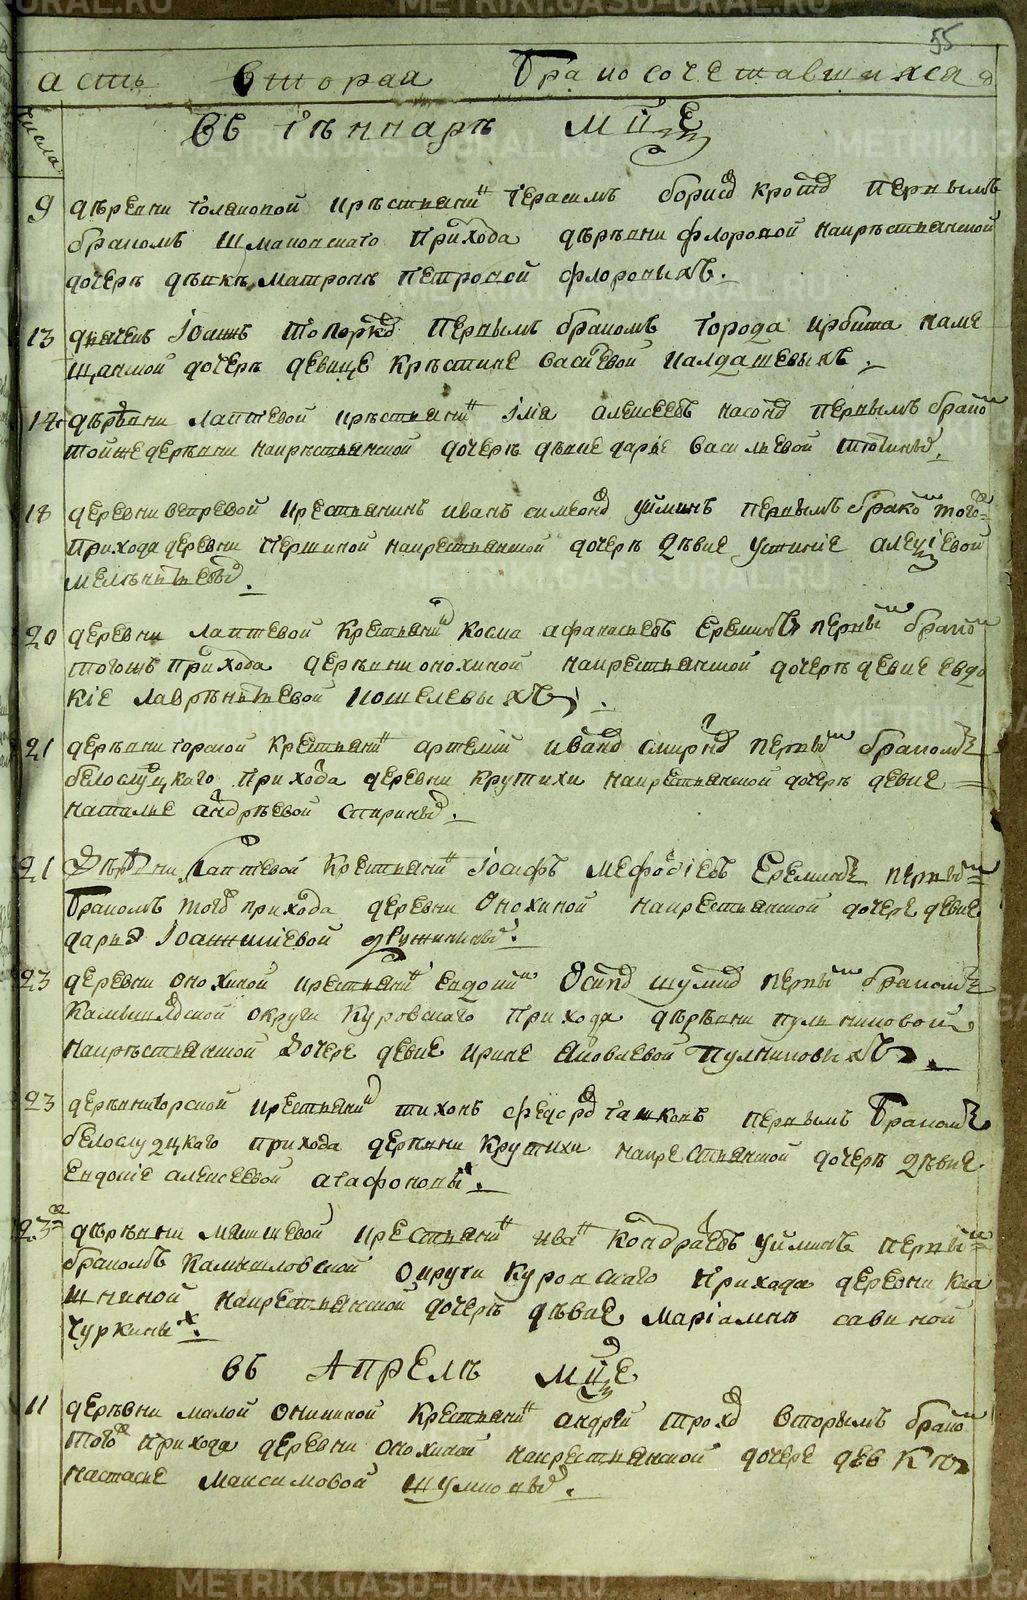 55
асть вторая бракосочетавшихся
числа
въ генварѣ мцѣ
9 дѣревни Голяковой крѣстьянинъ Герасимъ борисовъ первымъ
бракомъ Шмаковскаго прихода дѣрѣвни флоровой накрѣстьянской
дочерѣ дѣвкѣ Матронѣ Петровой флоровыхъ.
13 дьячекъ Іоаннъ Топорковъ первымъ бракомъ города ирбита на ме
щанской дочерѣ девице Крѣстине васильевой Налдашевыхъ.
14 дѣрѣвни Лаптевой крѣстьянинъ Илiя алексеевъ насоновъ первымъ брако
тойже дерѣвни накрѣстьянской дочерѣ дѣвке дарье васильевой
18 деревни ветревой крестьянинъ иванъ симеоновъ уйминъ первымъ брако того
прихода деревни Гершиной накрестьянской дочерѣ дѣвке устинiе алексiевой
20 деревни Лаптевой крестьянинъ Косма афанасьевъ Ереминъ первы брако
тогожъ прихода дерѣвни онохиной накрестьянской дочерѣ девке евдо
кiе Лаврѣнтьевой кошелевыхъ.
21 дерѣвни горской крестьянинъ артемiй ивановъ смирновъ первы бракомъ
белослудцкаго прихода деревни крутихи накрестьянской дочерѣ девке
наталье андрѣевой стариковы.
21 Дерѣвни Лаптевой крестьянинъ Іосифъ мефодiевъ Ереминъ первы
бракомъ того прихода деревни Онохиной накрестьянской дочере девке
дарье Іоанникiевой дружинины.
23 деревни онохиной крестьянинъ евдоким Осиповъ шумковъ первы бракомъ
Камышловской округи Куровскаго прихода дѣрѣвни пульниковой
накрѣстьянской дочере девке ирине яковлевой Пулниковыхъ.
23 дерѣвни горской крестьянинъ тихонъ федоровъ первымъ бракомъ
белослудцкаго прихода деревни Крутихи накрестьянской дочерѣ дѣвке
Евдокiе алексеевой агафоновы.
23 дѣрѣвни крестьянинъ иванъ кондратьевъ уйминъ первы
бракомъ Камышловской округи Куровскаго прихода деревни ква
шниной накрестьянской дочерѣ дѣвке Марiамнѣ савиной
Чуркины х.
въ Апрелѣ мцѣ
11 дерѣвни малой онохиной крестьянинъ андрей вторымъ брако
того прихода деревни онохиной накрестьянской дочере девке
настасье максимовой шумковы.